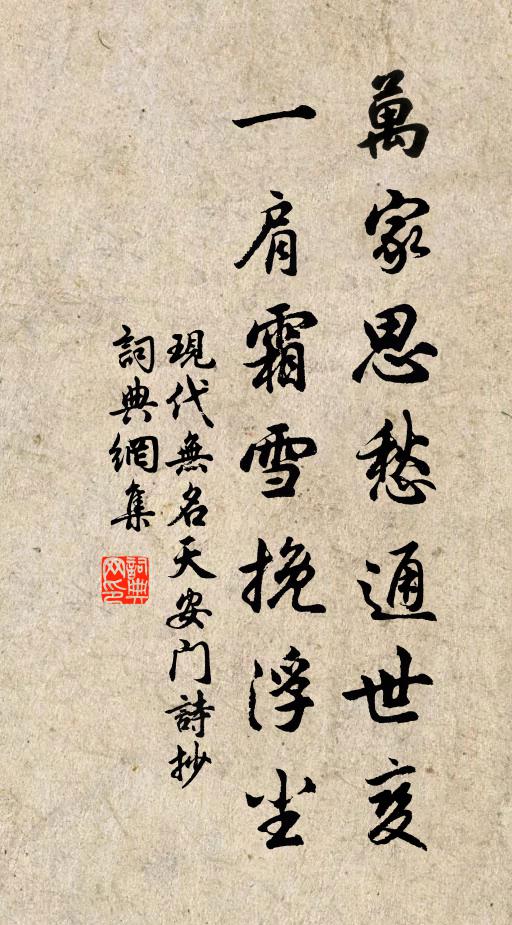 萬家思愁通世变
一肩霜雪挽浮尘
現代無名天安门詩抄
詞典網集
詞典
网印